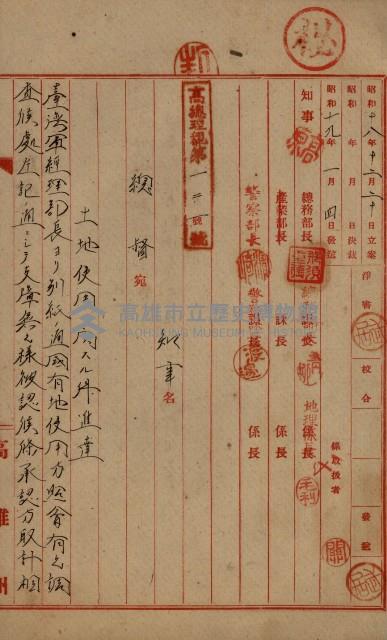 秘
昭和十八年十二月二十日立案
昭和 年 月 日決裁
昭和十九年一月四日發
淨書
校合
發送
知事
總務部長
地理係長
係長
產業部長
課長
係長
警察部長
警務課長
係長
高總理記第一三一號
總督宛
知事名
土地使用ニ關スル件進達
臺灣軍經理部長ヨリ別紙ノ通國有地使用方照會有之調
查候處左記ノ通ニシテ支障無之様被認候條承認方取計相
高雄州
高雄市立歷史博物館
KAOHSIUNG MUSEUM OF HISTORY